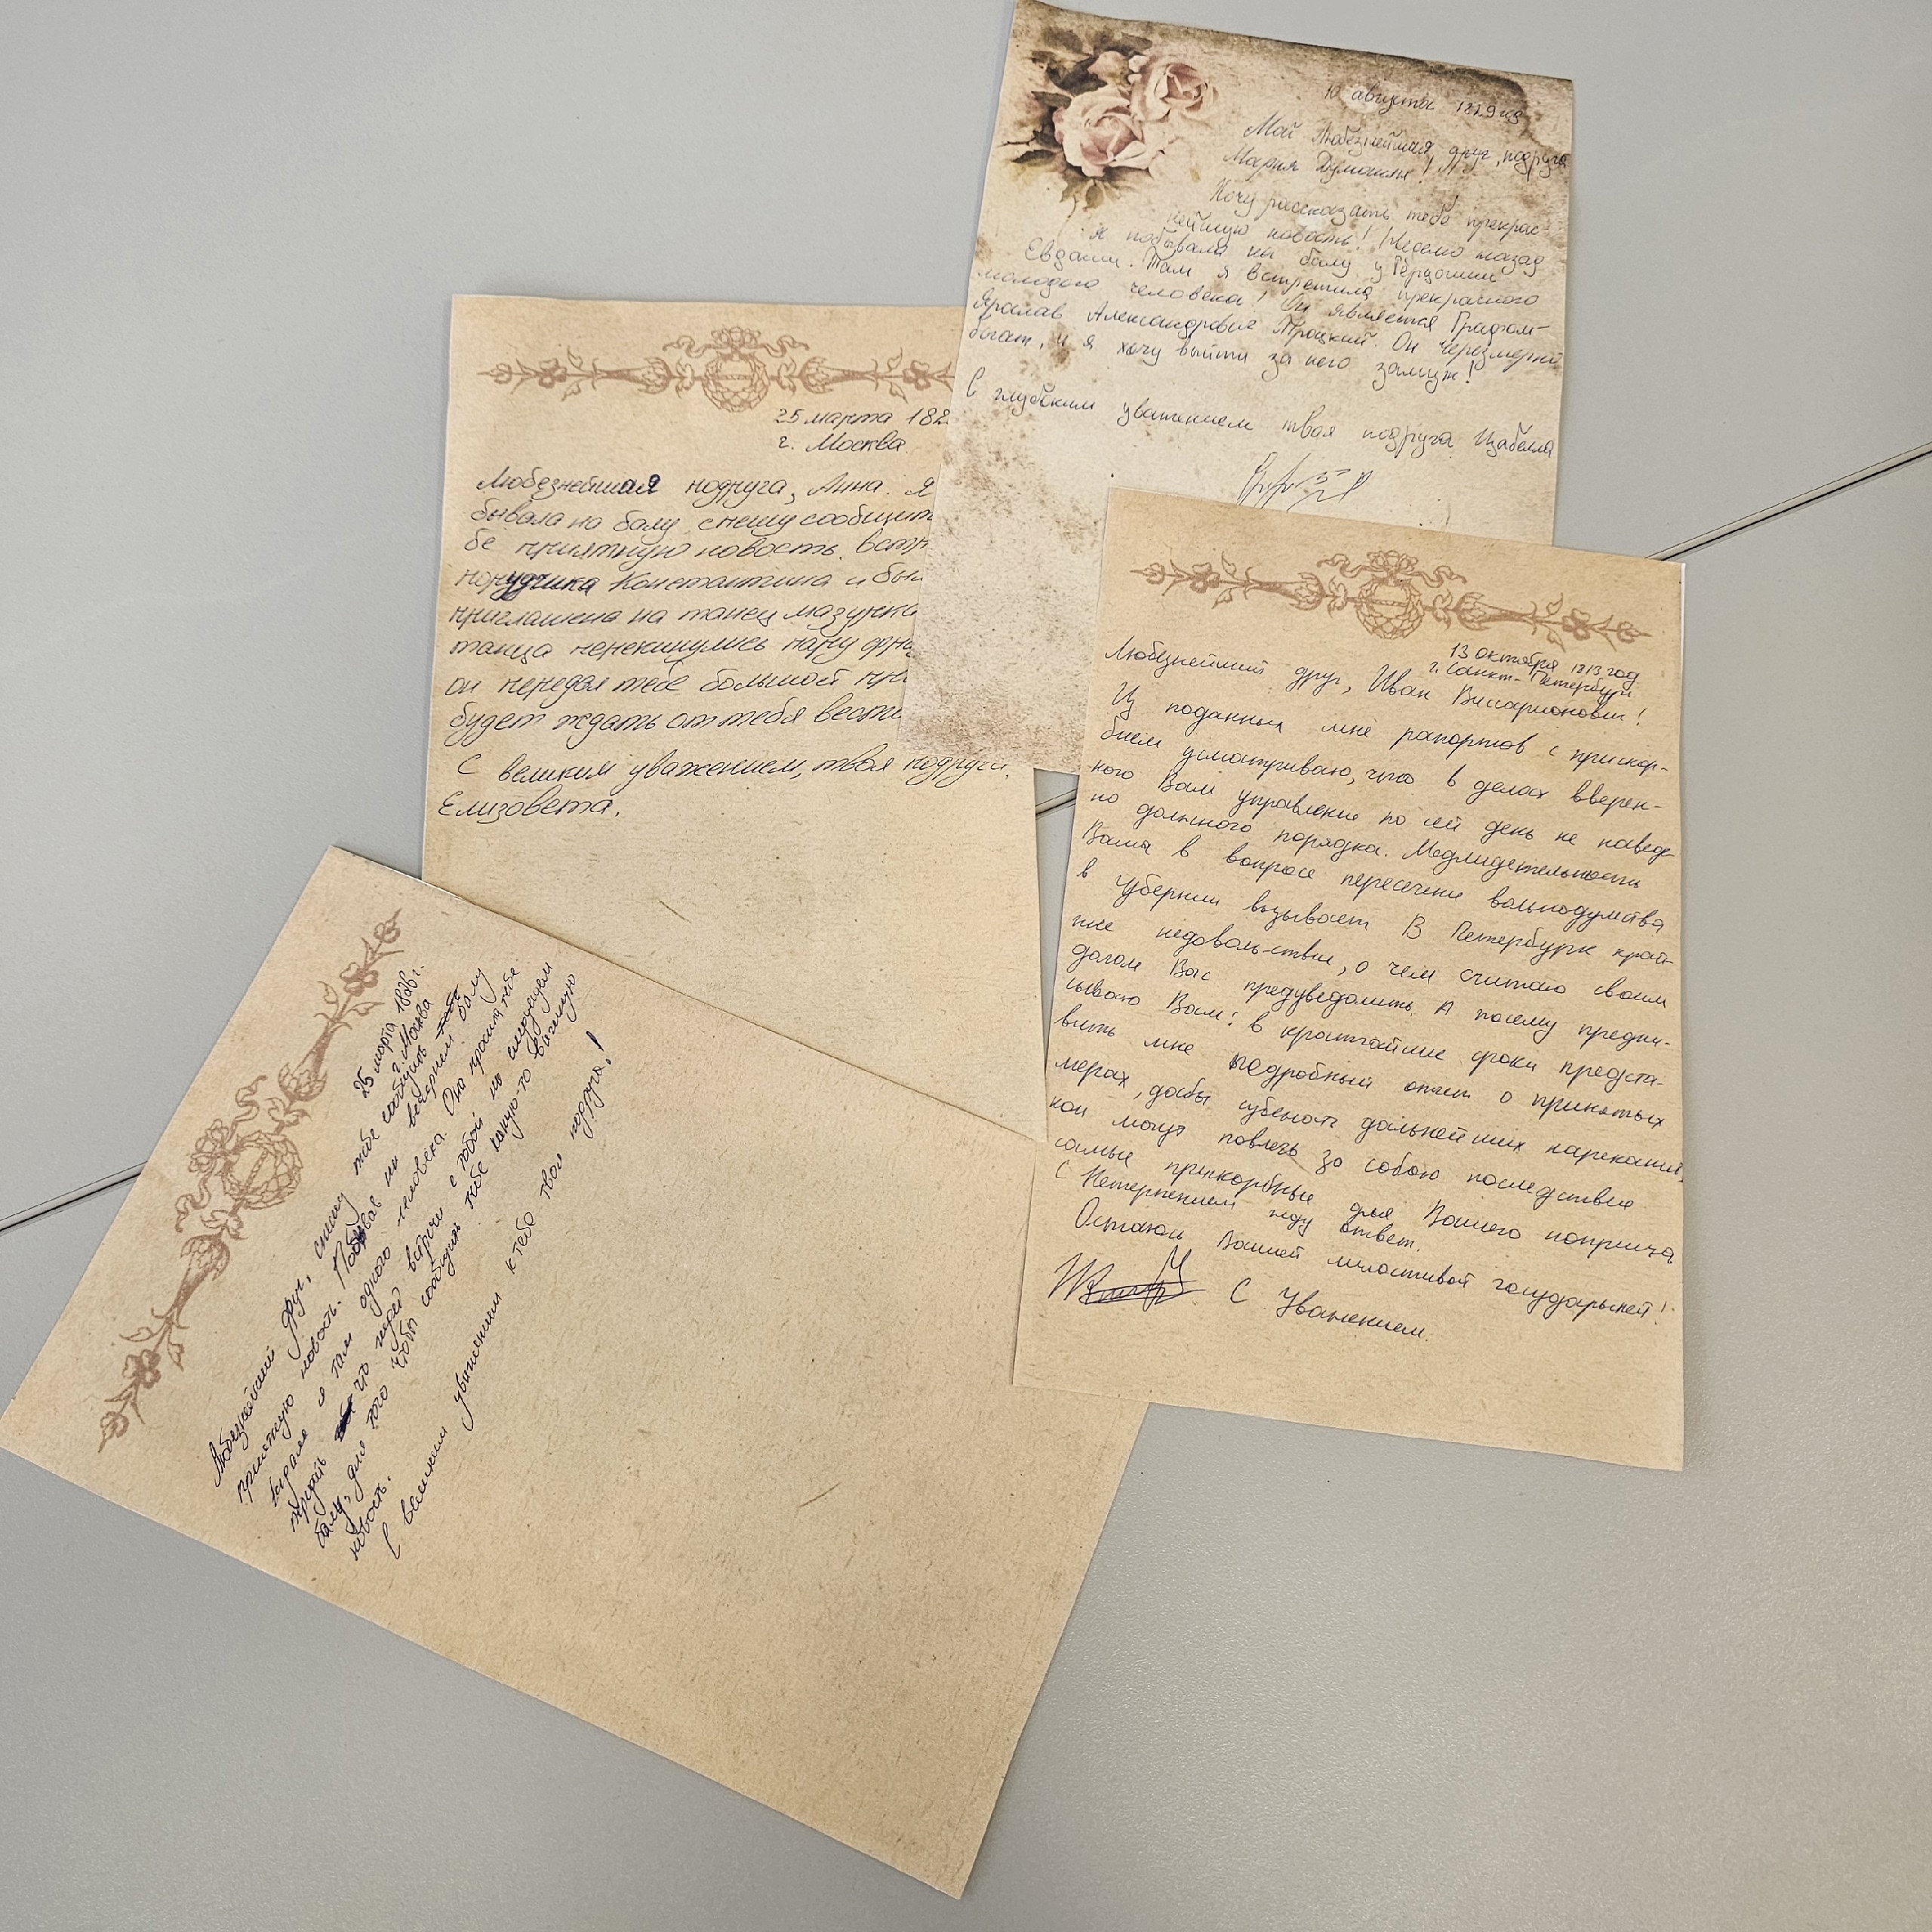 10 августа 1829 год
Мой Любезнейшая друг, подруга
Мария Думонт!
Хочу рассказать тебе прекрас-
нейшую новость! Неделю назад
я побывала на балу у Герцогини
Евдокии. Там я встретила прекрасного
молодого человека! Он является Графом-
Ярослав Александрович Троцкий. Он черезмерно
богат, и я хочу выйти за него замуж!
С глубоким уважением твоя подруга Изабелла
25 марта 182
г. Москва
Любезнейшая подруга, Анна. Я
бывала на балу, спешу сообщить
бе приятную новость. Встр
поручика Константина и бы
приглашена на танец мазурка
танца перекинулись пару фра
он передал тебе большой пр
будет ждать от тебя вести
С великим уважением, твоя подруга,
Елизовета.
13 октября 1813 год
г. Санкт-Петербург
Любезнейший друг, Иван Висарионович!
Из поданных мне рапортов с прискор-
бием усматриваю, что в делах вверен-
ного Вам управление по сей день не навед-
но должного порядка. Медлидетельность
Ваша в вопросе пересечени вольнодумства
в Губернии вызывает В Петербурге край-
нне недовольствие, о чем считаю своим
долгом Вас предуведомить. А посему предпи-
сываю Вам: в кратчайшие сроки предста-
вить мне подробный отчет о принятых
мерах, дабы избежать дальнейших нареканий,
кои могут повлечь за собою последствие
самые прискорбные для Вашего поприща
С Нетерпением жду ответ.
Остаюсь Вашей милостивой государыней!
С Уважением.
25 марта 1828г.
г. Москва
Любезнейший друг, спешу тебе сообщить
приятную новость. Побывав на вечернем балу
я там одного человека. Она просила тебе
передать что ждёт встречи с тобой на следующем
балу, для того чтобы сообщить тебе какую-то важную
новость.
С великим уважением к тебе твоя подруга!